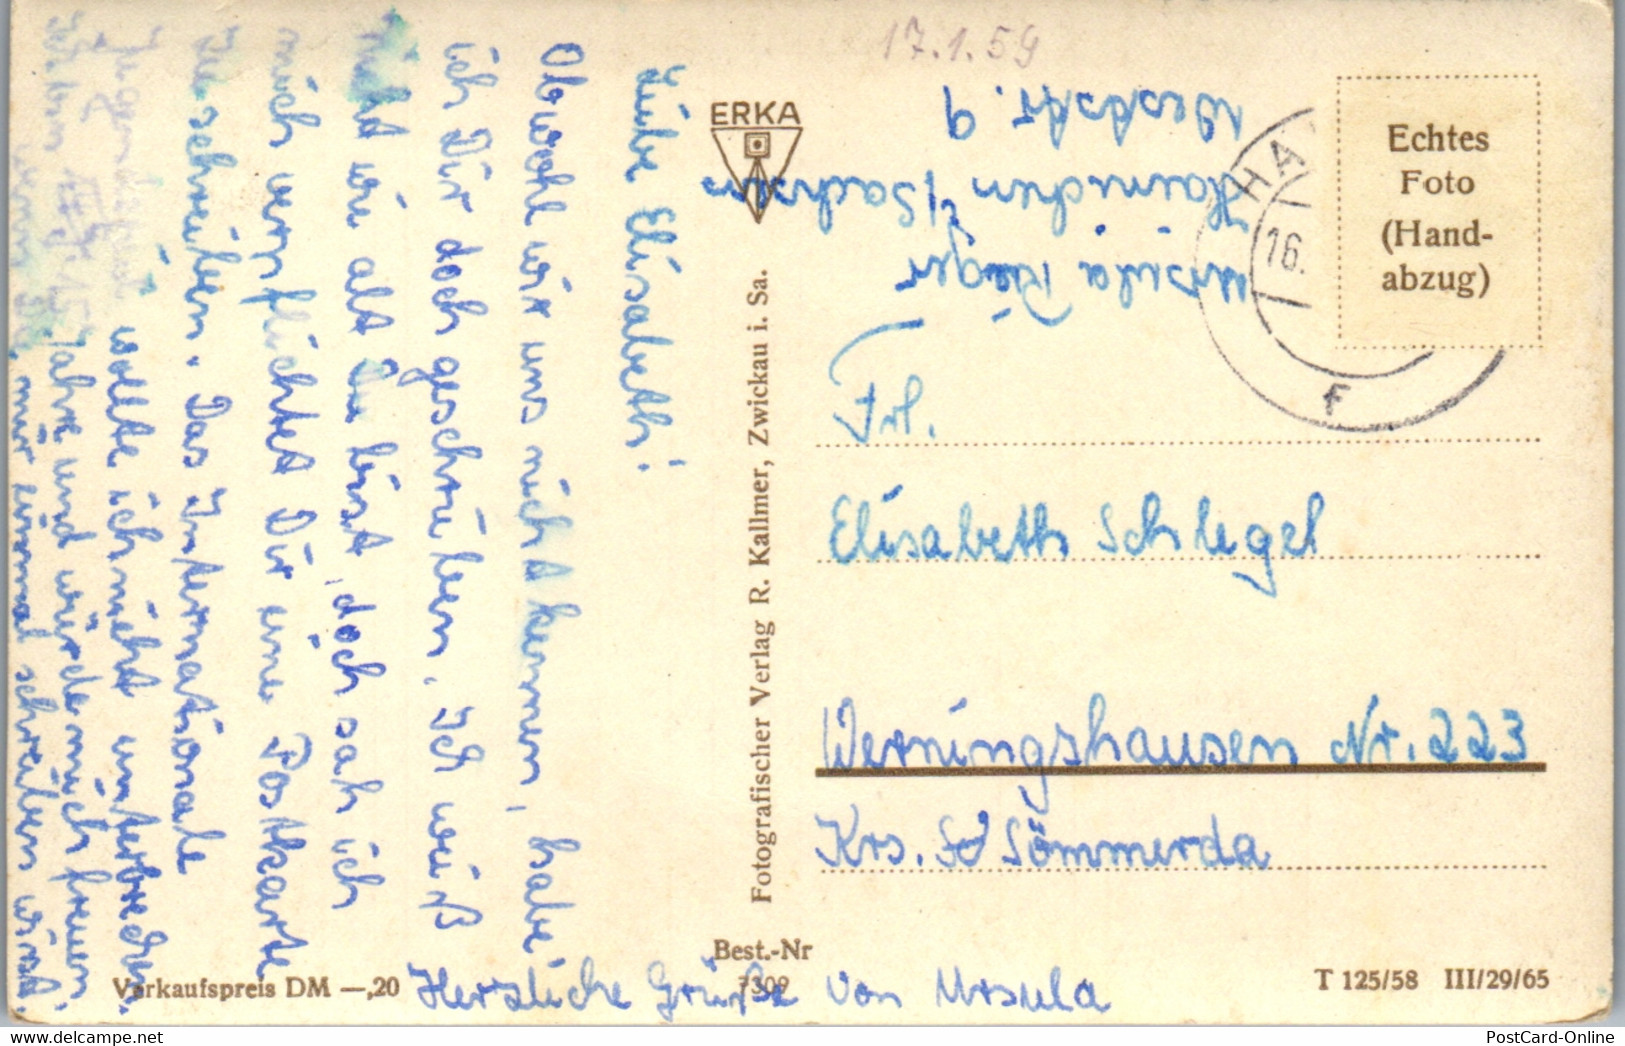 17.1.59
Liebe Elisabeth!
Obwohl wir uns nicht kennen, habe
ich Dir doch geschrieben. Ich weiß
nicht wie alt Du bist, doch sah ich
mich verpflichtet Dir eine Postkarte
zu schreiben. Das Internationale
wollte ich nicht unterbrechen.
Jahre und würde mich freuen,
wenn Du mir einmal schreiben wirst.
Herzliche Grüße von Ursula
ERKA
Fotografischer Verlag R. Kallmer, Zwickau i. Sa.
Ursula Rüger
Hainichen i/Sachsen
Weststr. 9
HA
16.
F
Echtes
Foto
(Hand-
abzug)
Frl.
Elisabeth Schlegel
Werningshausen Nr. 223
Krs. Sömmerda
Best.-Nr
7309
Verkaufspreis DM —,20
T 125/58 III/29/65
https://www.delcampe.net
PostCard-Online